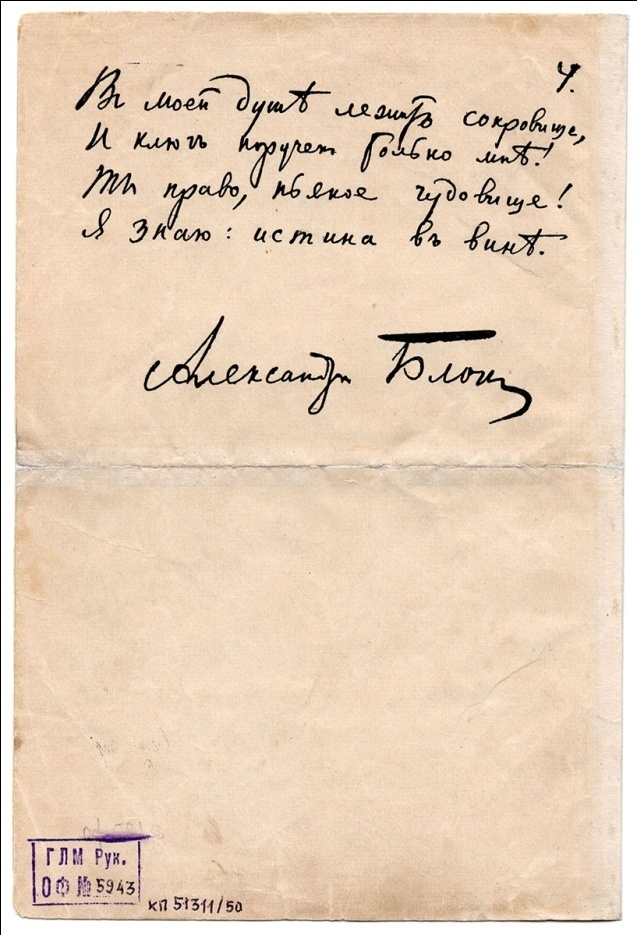 4.
Въ моей душѣ лежитъ сокровище,
И ключъ порученъ только мнѣ!
Ты право, пьяное чудовище!
Я знаю: истина въ винѣ.
Александръ Блокъ
ГЛМ Рук.
ОФ № 5943
КП 51311/50